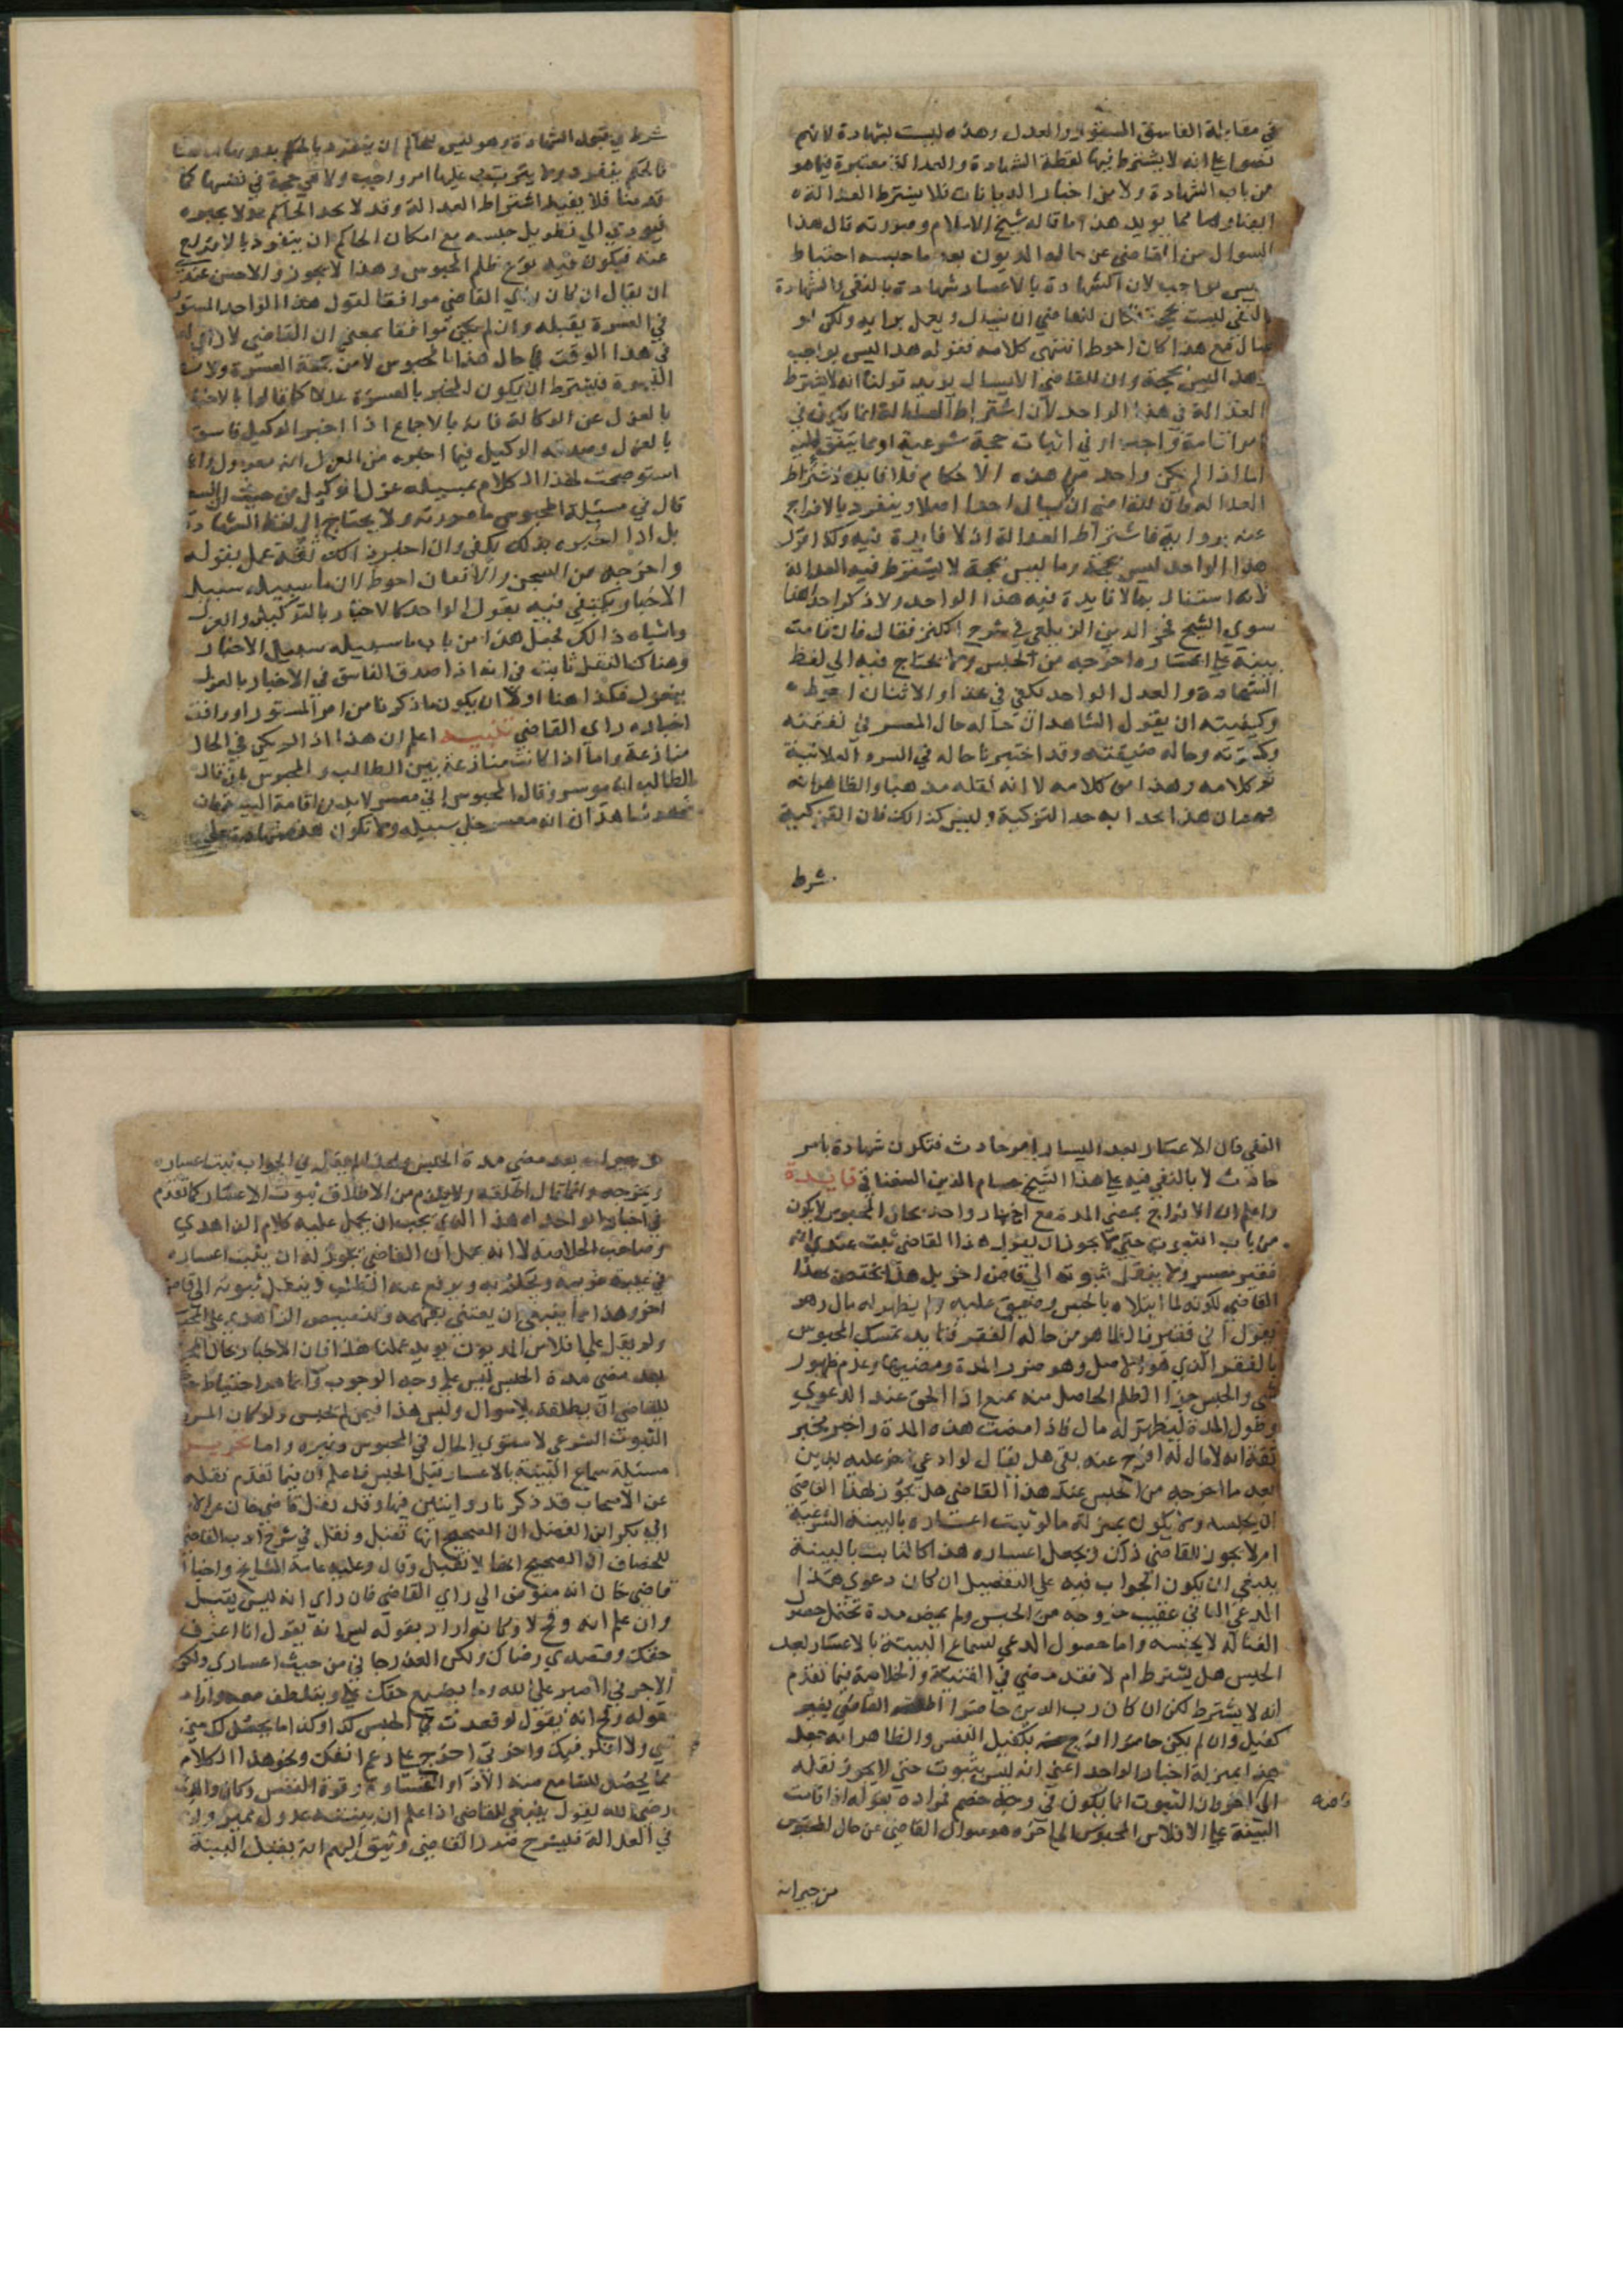 في مقابلة الفاسق المستور والعدل وهذه ليست بشهادة لانهم
نصوا على انه لا يشترط فيها لفظة الشهادة والعدالة معتبرة فيما هو
من باب الشهادة ولا من اخبار الديانات فلا يشترط العدالة
ايضا ومما يويد هذا ما قاله شيخ الاسلام وصورته قال هذا
السوال من القاضي عن حال المديون بعد ما حبسه احتياط
ليس بواجب لان الشهادة بالاعسار شهادة بالنفي والشهادة
بالنفي ليست بحجة فكان للقاضي ان لا يسال ويعمل برايه ولكن لو
سال مع هذا كان احوط انتهى كلامه فقوله هذا ليس بواجب
وهذا ليس بحجة وان للقاضي ان لا يسال يويد قولنا انه لا يشترط
العدالة في هذا الواحد لان اشتراط العدالة انما يكون في
امر اقامة واجب او في اثبات حجة شرعية او ما يتفق
اما اذا لم يكن واحد من هذه الاحكام فلا فايدة لاشتراط
العدالة فان للقاضي ان لا يسال احدا اصلا وينفرد بالافراج
عنه برايه فاشتراط العدالة اذا لا فايدة فيه وكذا قول
هذا الواحد ليس بحجة وما ليس بحجة لا يشترط فيه العدالة
لانه اشتغال بما لا فايدة فيه هذا الواحد ولا ذكر احد هنا
سوى الشيخ فخر الدين الزيلعي في شرح الكنز فقال فان قامت
بينة على اعساره اخرجه من الحبس ولا يحتاج فيه الى لفظ
الشهادة والعدل الواحد يكفي في هذا والاثنان احوط
وكيفيته ان يقول الشاهد ان حاله حال المعسر في نفقته
وكسوته وحاله ضيقته وقد اختبرنا حاله في السر والعلانية
تم كلامه وهذا من كلامه لا انه نقله مذهبا والظاهر انه
ان هذا حذا به حذا التزكية وليس كذلك فان التزكية
شرط
شرط في قبول الشهادة وهو ليس للحاكم ان ينفرد بالحكم بدونها
فالحكم ينفرد ولا يترتب عليها امر واجب ولا هي حجة في نفسها كما
قدمنا فلا يفيد اشتراط العدالة وقد لا يجد الحاكم عدلا يخبره
فيودي الى تطويل حبسه مع امكان الحاكم ان ينفرد بالافراج
عنه فيكون فيه نوع ظلم المحبوس وهذا لا يجوز والاحسن عندي
ان يقال ان كان راي القاضي موافقا لقول هذا الواحد المستور
في العسرة يقبله وان لم يكن موافقا بمعنى ان القاضي لا راي له
في هذا الوقت في حال هذا المحبوس لا من جهة العسرة ولا من
الميسرة فيشترط ان يكون المخبر بالعسرة عدلا كما قالوا بالاخبار
بالعزل عن الوكالة فانه بالاجماع اذا اخبر الوكيل فاسق
بالعزل وصدقه الوكيل فيما اخبره من العزل انه معزول
استوضحت لهذا الكلام بمسيلة عزل الوكيل من حيث
قال في مسئلة المحبوس ما صورته ولا يحتاج الى لفظ الشهادة
بل اذا اخبره بذلك يكفي وان اخبره بذلك ثقة عمل بقوله
واخرجه من السجن والاثنان احوط ان ما سبيله سبيل
الاخبار يكتفى فيه بقول الواحد كالاخبار بالتوكيل والعزل
واشباه ذالك فجعل هذا من باب ما سبيله سبيل الاخبار
وهناك النقل ثابت في انه اذا صدق الفاسق في الاخبار بالعزل
ينعزل فكذا هنا اولا ان يكون ما ذكرنا من امر المستور او وافق
اخباره راي القاضي تنبيه اعلم ان هذا اذا لم يكن في الحال
منازعة واما اذا كانت منازعة بين الطالب والمحبوس بان قال
الطالب انه موسر وقال المحبوس اني معسر لا بد من اقامة البينة فان
شهد شاهدان انه معسر خلى سبيله ولا تكون هذه شهادة على
النفي فان الاعسار بعد اليسار امر حادث فتكون شهادة بامر
حادث لا بالنفي نبه على هذا الشيخ حسام الدين السغناقي فايدة
واعلم ان الافراج بمضي المدة مع اخبار واحد بحال المحبوس لا يكون
من باب الثبوت حتى لا يجوز ان يقول هذا القاضي ثبت عندي انه
فقير معسر ولا ينقل ثبوته الى قاض اخر بل هذا يختص بهذا
القاضي لكونه لما ابتلاه بالحبس وضيق عليه ولم يظهر له مال وهو
يقول اني فقير فالظاهر من حاله الفقر فتايد تمسك المحبوس
بالفقر الذي هو الاصل وهو ضرر المدة ومضيها وعدم ظهور
شي والحبس جزا الظلم الحاصل منه بمنع اذا الحق عند الدعوى
وطول المدة ليظهر له مال فاذا مضت هذه المدة واخبر مخبر
ثقة انه لا مال له افرج عنه بقى هل يقال لو ادعى اخر عليه بدين
بعد ما اخرجه من الحبس عند هذا القاضي هل يجوز لهذا القاضي
ان يحبسه ولا يكون بمنزلة ما لو ثبت اعساره بالبينة الشرعية
ام لا يجوز للقاضي ذلك ويجعل اعساره هذا كالثابت بالبينة
ينبغي ان يكون الجواب فيه على التفصيل ان كان دعوى هذا
المدعي الثاني عقيب خروجه من الحبس ولم يمض مدة تحتمل حصول
الغنا له لا يحبسه واما حصول المدعي لسماع البينة بالاعسار بعد
الحبس هل يشترط ام لا فقد مضى في القنية والخلاصة فيما تقدم
انه لا يشترط لكن ان كان رب الدين حاضرا اطلقه القاضي بغير
كفيل وان لم يكن حاضرا افرج عنه بكفيل النفس والظاهر انه جعل
هذا بمنزلة اخبار الواحد اعني انه ليس بثبوت حتى لا يجوز نقله
الى اخر فان الثبوت انما يكون في وجه خصم فمراده بقوله اذا قامت
البينة على الافلاس المحبوس الى اخره هو سوال القاضي عن حال المحبوس
من جيرانه
من جيرانه بعد مضي مدة الحبس ولهذا لم يقل في الجواب ثبت اعساره
ويخرجه وانما قال اطلقه ولا يلزم من الاطلاق ثبوت الاعسار كما تقدم
في اخبار الواحد اه هذا الذي يجب ان يحمل عليه كلام الزاهدي
وصاحب الخلاصة لا انه عمل ان القاضي يجوز له ان يثبت اعساره
في غيبة خصمه ويحكم به ويرفع عنه الطلب وينقل ثبوته الى قاض
اخر وهذا مما ينبغي ان يعتنى بفهمه وتنصيص الزاهدي على المحبوس
ولم يقل على افلاس المديون يويد عملنا هذا فان الاخبار بحال المحبوس
بعد مضي مدة الحبس ليس على وجه الوجوب وانما هو احتياط
للقاضي ان يطلقه بلا سوال وليس هذا فيمن لم يحبس ولو كان المراد
الثبوت الشرعي لاستوى الحال في المحبوس وغيره واما تحرير
مسئلة سماع البينة بالاعسار قبل الحبس فاعلم ان فيما تقدم نقله
عن الاصحاب قد ذكرنا روايتين فيها وقد نقل قاضي خان عن الامام
ابي بكر ابن الفضل ان الصحيح انها تقبل ونقل في شرح ادب القاضي
للخصاف ان الصحيح انها لا تقبل وقال وعليه عامة المشايخ واختار
قاضي خان انه مفوض الى راي القاضي فان راي انه لين يقبل
وان علم انه وقح لا وكانه اراد بقوله لين انه يقول انا اعترف
حقك وقصدي رضاك ولكن العذر جاني من حيث اعساري ولكن
الاجر في الصبر على الله وما يضيع حقك علي ويتلطف معه واراد
بقوله وقح انه يقول لو قعدت في الحبس كذا وكذا ما يحصل لك مني
شي ولا افكر فيك واخرتي اخرج على رغم انفك ونحو هذا الكلام
مما يحصل للسامع منه الاذا والقساوة وقوة النفس وكان والدي
رضى الله يقول ينبغي للقاضي اذا علم ان بينته عدول مميزون
في العدالة فلينشرح صدر القاضي وثيق اليهم انه يقبل البينة